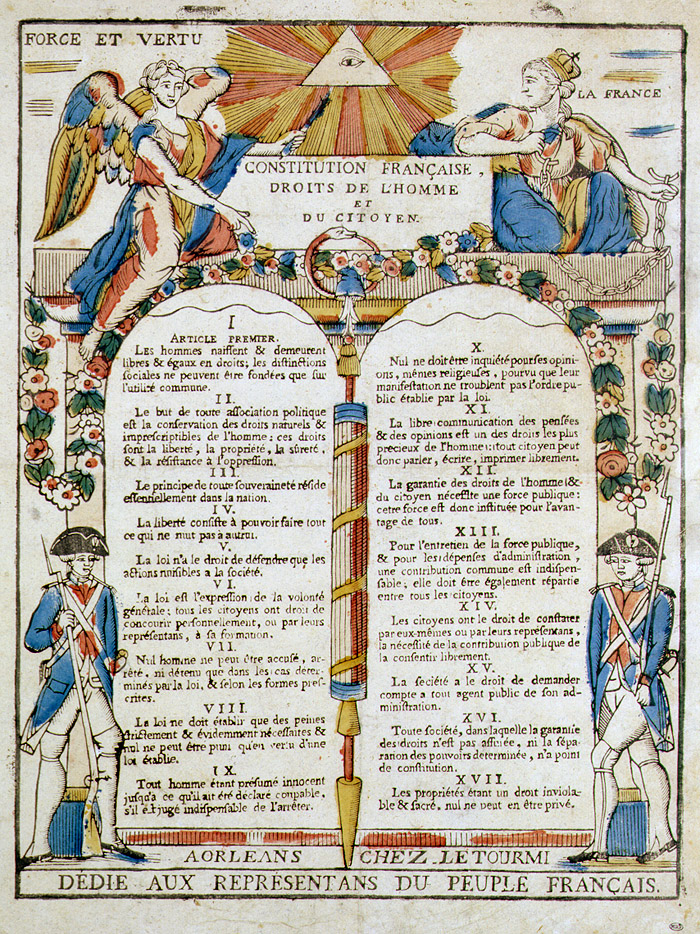 FORCE ET VERTU
LA FRANCE
CONSTITUTION FRANÇAISE,
DROITS DE L'HOMME
ET
DU CITOYEN.
I
ARTICLE PREMIER.
Les hommes naissent & demeurent
libres & égaux en droits; les distinctions
sociales ne peuvent être fondées que sur
l'utilité commune.
II.
Le but de toute association politique
est la conservation des droits naturels &
imprescriptibles de l'homme: ces droits
sont la liberté, la propriété, la sûreté,
& la résistance à l'oppression.
III.
Le principe de toute souveraineté réside
essentiellement dans la nation.
IV.
La liberté consiste à pouvoir faire tout
ce qui ne nuit pas à autrui.
V.
La loi n'a le droit de défendre que les
actions nuisibles a la société.
VI.
La loi est l'expression de la volonté
générale; tous les citoyens ont droit de
concourir personnellement, ou par leurs
représentans, à sa formation.
VII.
Nul homme ne peut être accusé, ar-
rêté, ni détenu que dans les cas déter-
minés par la loi, & selon les formes pres-
crites.
VIII.
La loi ne doit établir que des peines
strictement & évidemment nécessaires &
nul ne peut être puni qu'en vertu d'une
loi établie.
IX.
Tout homme étant présumé innocent
jusqu'a ce qu'il ait été déclaré coupable,
s'il est jugé indispensable de l'arrêter.
X.
Nul ne doit être inquiété pour ses opini-
ons, mêmes religieuses, pourvu que leur
manifestation ne troublent pas l'ordre pu-
blic établie par la loi.
XI.
La libre communication des pensées
& des opinions est un des droits les plus
precieux de l'homme: tout citoyen peut
donc parler, écrire, imprimer librement.
XII.
La garantie des droits de l'homme &
du citoyen nécessite une force publique:
cette force est donc instituée pour l'avan-
tage de tous.
XIII.
Pour l'entretien de la force publique,
& pour les dépenses d'administration,
une contribution commune est indispen-
sable; elle doit être également répartie
entre tous les citoyens.
XIV.
Les citoyens ont le droit de constater
par eux-mêmes ou par leurs représentans,
la nécessité de la contribution publique de
la consentir librement.
XV.
La societé a le droit de demander
compte a tout agent public de son ad-
ministration.
XVI.
Toute société, dans laquelle la garantie
des droits n'est pas assurée, ni la sépa-
ration des pouvoirs determinée, n'a point
de constitution.
XVII.
Les propriétés étant un droit inviola-
ble & sacré, nul ne peut en être privé.
A ORLEANS CHEZ LETOURMI
DÉDIE AUX REPRÉSENTANS DU PEUPLE FRANÇAIS.